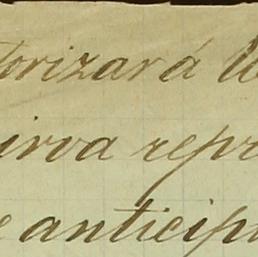 torizará U
irva repr
e anticip